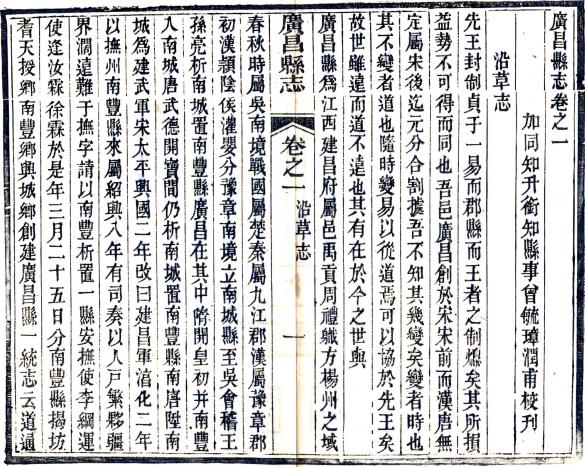 廣昌縣志卷之一
加同知升銜知縣事曾毓璋潤甫校刊
沿革志
先王封制貞于一易而郡縣而王者之制熄矣其所損
益勢不可得而同也吾邑廣昌創於宋宋前而漢唐無
定屬宋後迄元分合割據吾不知其幾變矣變者時也
其不變者道也隨時變易以從道焉可以協於先王矣
故世雖遠而道不遠也其有在於今之世與
廣昌縣爲江西建昌府屬邑禹貢周禮職方楊州之域
廣昌縣志
卷之一
沿革志
一
春秋時屬吳南境戰國屬楚秦屬九江郡漢屬豫章郡
初漢潁陰侯灌嬰分豫章南境立南城縣至吳會稽王
孫亮析南城置南豐縣廣昌在其中隋開皇初并南豐
入南城唐武德開寶間仍析南城置南豐縣南唐陞南
城爲建武軍宋太平興國二年改曰建昌軍淳化二年
以撫州南豐縣來屬紹興八年有司奏以人戸繁夥疆
界濶遠難于撫字請以南豐析置一縣安撫使李綱運
使逢汝霖徐霖於是年三月二十五日分南豐縣揭坊
耆天授鄉南豐鄉興城鄉創建廣昌縣一統志云道通